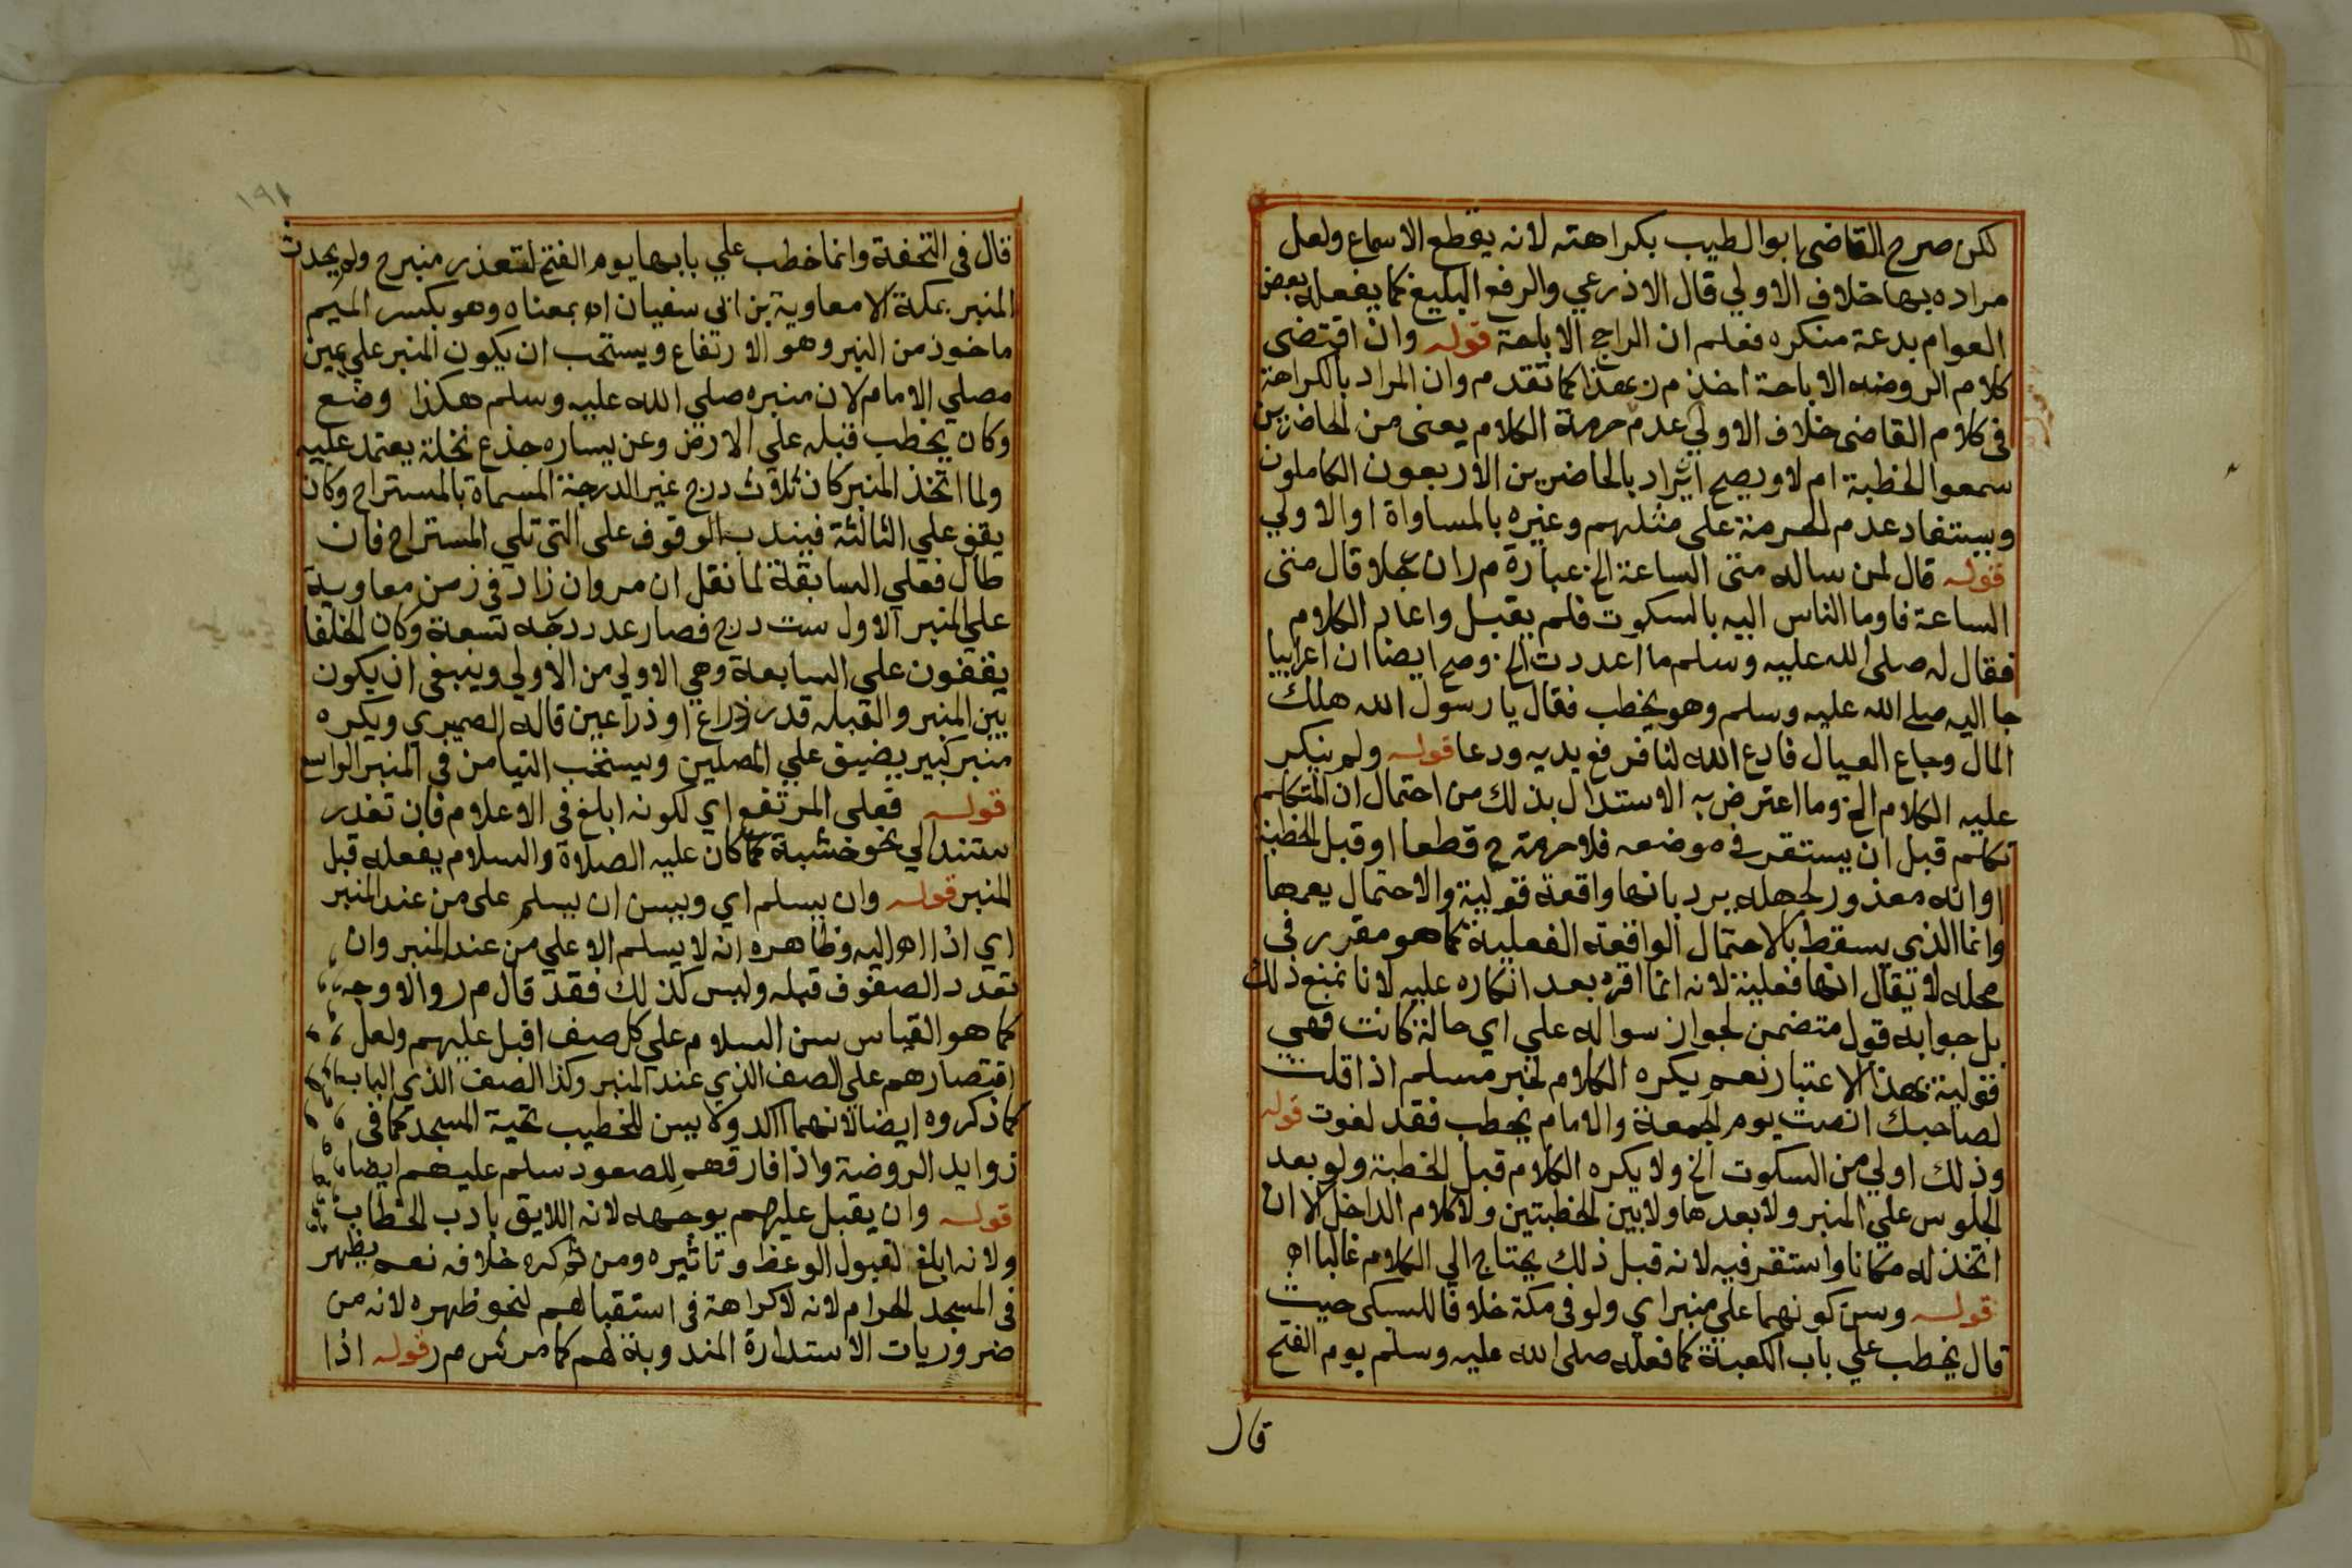 لكن صرح القاضي ابوالطيب بكراهته لانه يقطع الاسماع ولعل
مراده بها خلاف الاولي قال الاذرعي والرفع البليغ كما يفعله بعض
العوام بدعة منكره فعلم ان الراجح الاباحة قوله وان اقتضى
كلام الروضه الاباحة اخذ م ر بهذا كما تقدم وان المراد بالكراهة
في كلام القاضي خلاف الاولي عدم حرمة الكلام يعنى من الحاضرين
سمعوا الخطبة ام لا ويصح ان يراد بالحاضرين الاربعون الكاملون
ويستفاد عدم الحرمة على مثلهم وغيره بالمساواة او الاولي
قوله قال لمن ساله متى الساعة الخ عبارة م ر ان رجلا قال متى
الساعة فاوما الناس اليه بالسكوت فلم يقبل واعاد الكلام
فقال له صلى الله عليه وسلم ما اعددت الخ وصح ايضا ان اعرابيا
جا اليه صلى الله عليه وسلم وهو يخطب فقال يا رسول الله هلك
المال وجاع العيال فادع الله لنا فرفع يديه ودعا قوله ولم ينكر
عليه الكلام الخ وما اعترض به الاستدلال بذلك من احتمال ان المتكلم
تكلم قبل ان يستقر في موضعه فلا حرمة ح قطعا او قبل الخطبة
او انه معذور لجهله يرد بانها واقعة قولية والاحتمال يعمها
وانما الذي يسقط بالاحتمال الواقعة الفعلية كما هو مقرر في
محله لا يقال انها فعلية لانه انما اقره بعد انكاره عليه لانا نمنع ذلك
بل جوابه قول متضمن لجواز سواله علي اي حالة كانت فهي
قولية بهذا الاعتبار نعم يكره الكلام لخبر مسلم اذا قلت
لصاحبك انصت يوم الجمعة والامام يخطب فقد لغوت قوله
وذلك اولي من السكوت الخ ولا يكره الكلام قبل الخطبة ولو بعد
الجلوس علي المنبر ولا بعدها ولا بين الخطبتين ولا كلام الداخل الا ان
اتخذ له مكانا واستقر فيه لانه قبل ذلك يحتاج الي الكلام غالبا اه
قوله وسن كونهما علي منبر اي ولو في مكة خلافا للسبكى حيث
قال يخطب علي باب الكعبة كما فعله صلى الله عليه وسلم يوم الفتح
قال
١٩١
قال في التحفة وانما خطب علي بابها يوم الفتح لتعذر منبر ح ولم يحدث
المنبر بمكة الا معاوية بن ابي سفيان اه بمعناه وهو بكسر الميم
ماخوذ من النبر وهو الارتفاع ويستحب ان يكون المنبر علي يمين
مصلي الامام لان منبره صلي الله عليه وسلم هكذا وضع
وكان يخطب قبله علي الارض وعن يساره جذع نخلة يعتمد عليه
ولما اتخذ المنبر كان ثلاث درج غير الدرجة المسماة بالمستراح وكان
يقف علي الثالثة فيندب الوقوف على التي تلي المستراح فان
طال فعلي السابقة لما نقل ان مروان زاد في زمن معاوية
علي المنبر الاول ست درج فصار عدد درجه تسعة وكان الخلفا
يقفون علي السابعة وهي الاولي من الاولي وينبغي ان يكون
بين المنبر والقبله قدر ذراع او ذراعين قاله الصيمري ويكره
منبر كبير يضيق علي المصلين ويستحب التيامن في المنبر الواسع
قوله فعلى المرتفع اي لكونه ابلغ في الاعلام فان تعذر
ستند الي نحو خشبة كما كان عليه الصلاة والسلام يفعله قبل
المنبر قوله وان يسلم اي ويسن ان يسلم على من عند المنبر
اي اذا اه اليه وظاهره انه لا يسلم الا علي من عند المنبر وان
تعدد الصفوف قبله وليس كذلك فقد قال م ر والاوجه
كما هو القياس سن السلام علي كل صف اقبل عليهم ولعل
اقتصارهم علي الصف الذي عند المنبر وكذا الصف الذي الباب
كما ذكروه ايضا لانهما آكد ولا يسن للخطيب تحية المسجد كما في
زوايد الروضة واذا فارقهم للصعود سلم عليهم ايضا
قوله وان يقبل عليهم بوجهه لانه اللايق بادب الخطاب
ولانه ابلغ لقبول الوعظ وتاثيره ومن ثم كره خلافه نعم يظهر
في المسجد الحرام لانه لا كراهة في استقبالهم لنحو ظهره لانه من
ضروريات الاستدارة المندوبة لهم كما مر ش م ر قوله اذا